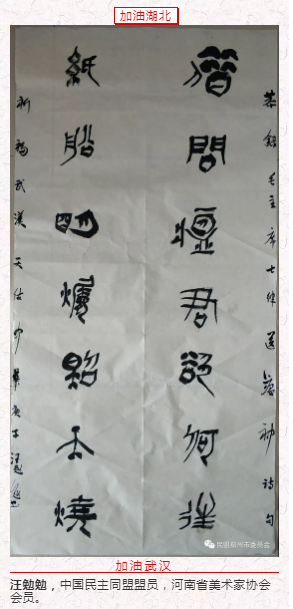 加油湖北
恭錄毛主席七律送瘟神詩句
借問瘟君欲何往
紙船明燭照天燒
祈福武漢天佑中華庚子
民盟郑州市委员会
加油武汉
汪勉勉，中国民主同盟盟员，河南省美术家协会
会员。